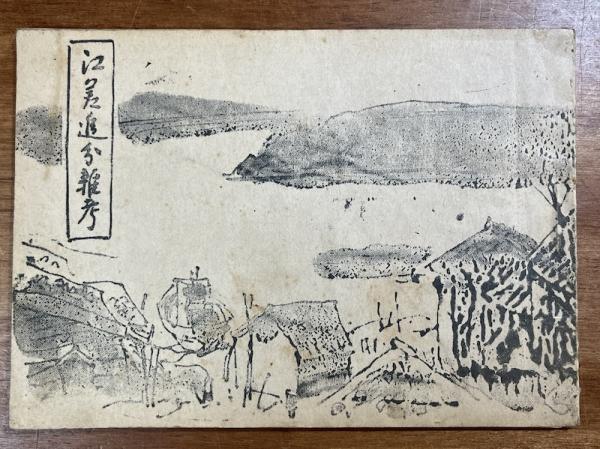 江差追分雜考